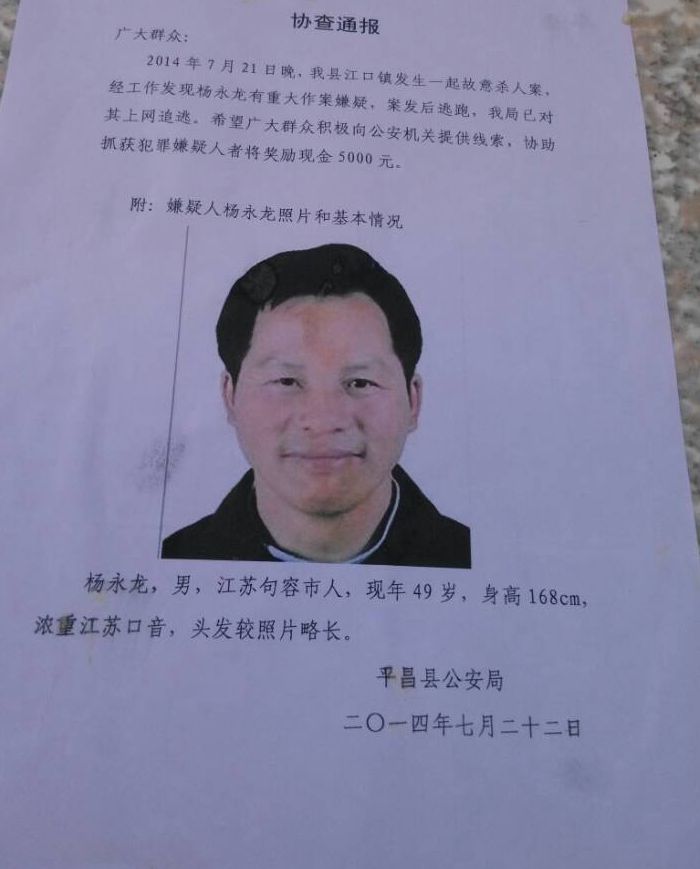 协查通报
广大群众：
2014年7月21日晚，我县江口镇发生一起故意杀人案，
经工作发现杨永龙有重大作案嫌疑，案发后逃跑，我局已对
其上网追逃。希望广大群众积极向公安机关提供线索，协助
抓获犯罪嫌疑人者将奖励现金5000元。
附：嫌疑人杨永龙照片和基本情况
杨永龙，男，江苏句容市人，现年49岁，身高168cm，
浓重江苏口音，头发较照片略长。
平昌县公安局
二〇一四年七月二十二日